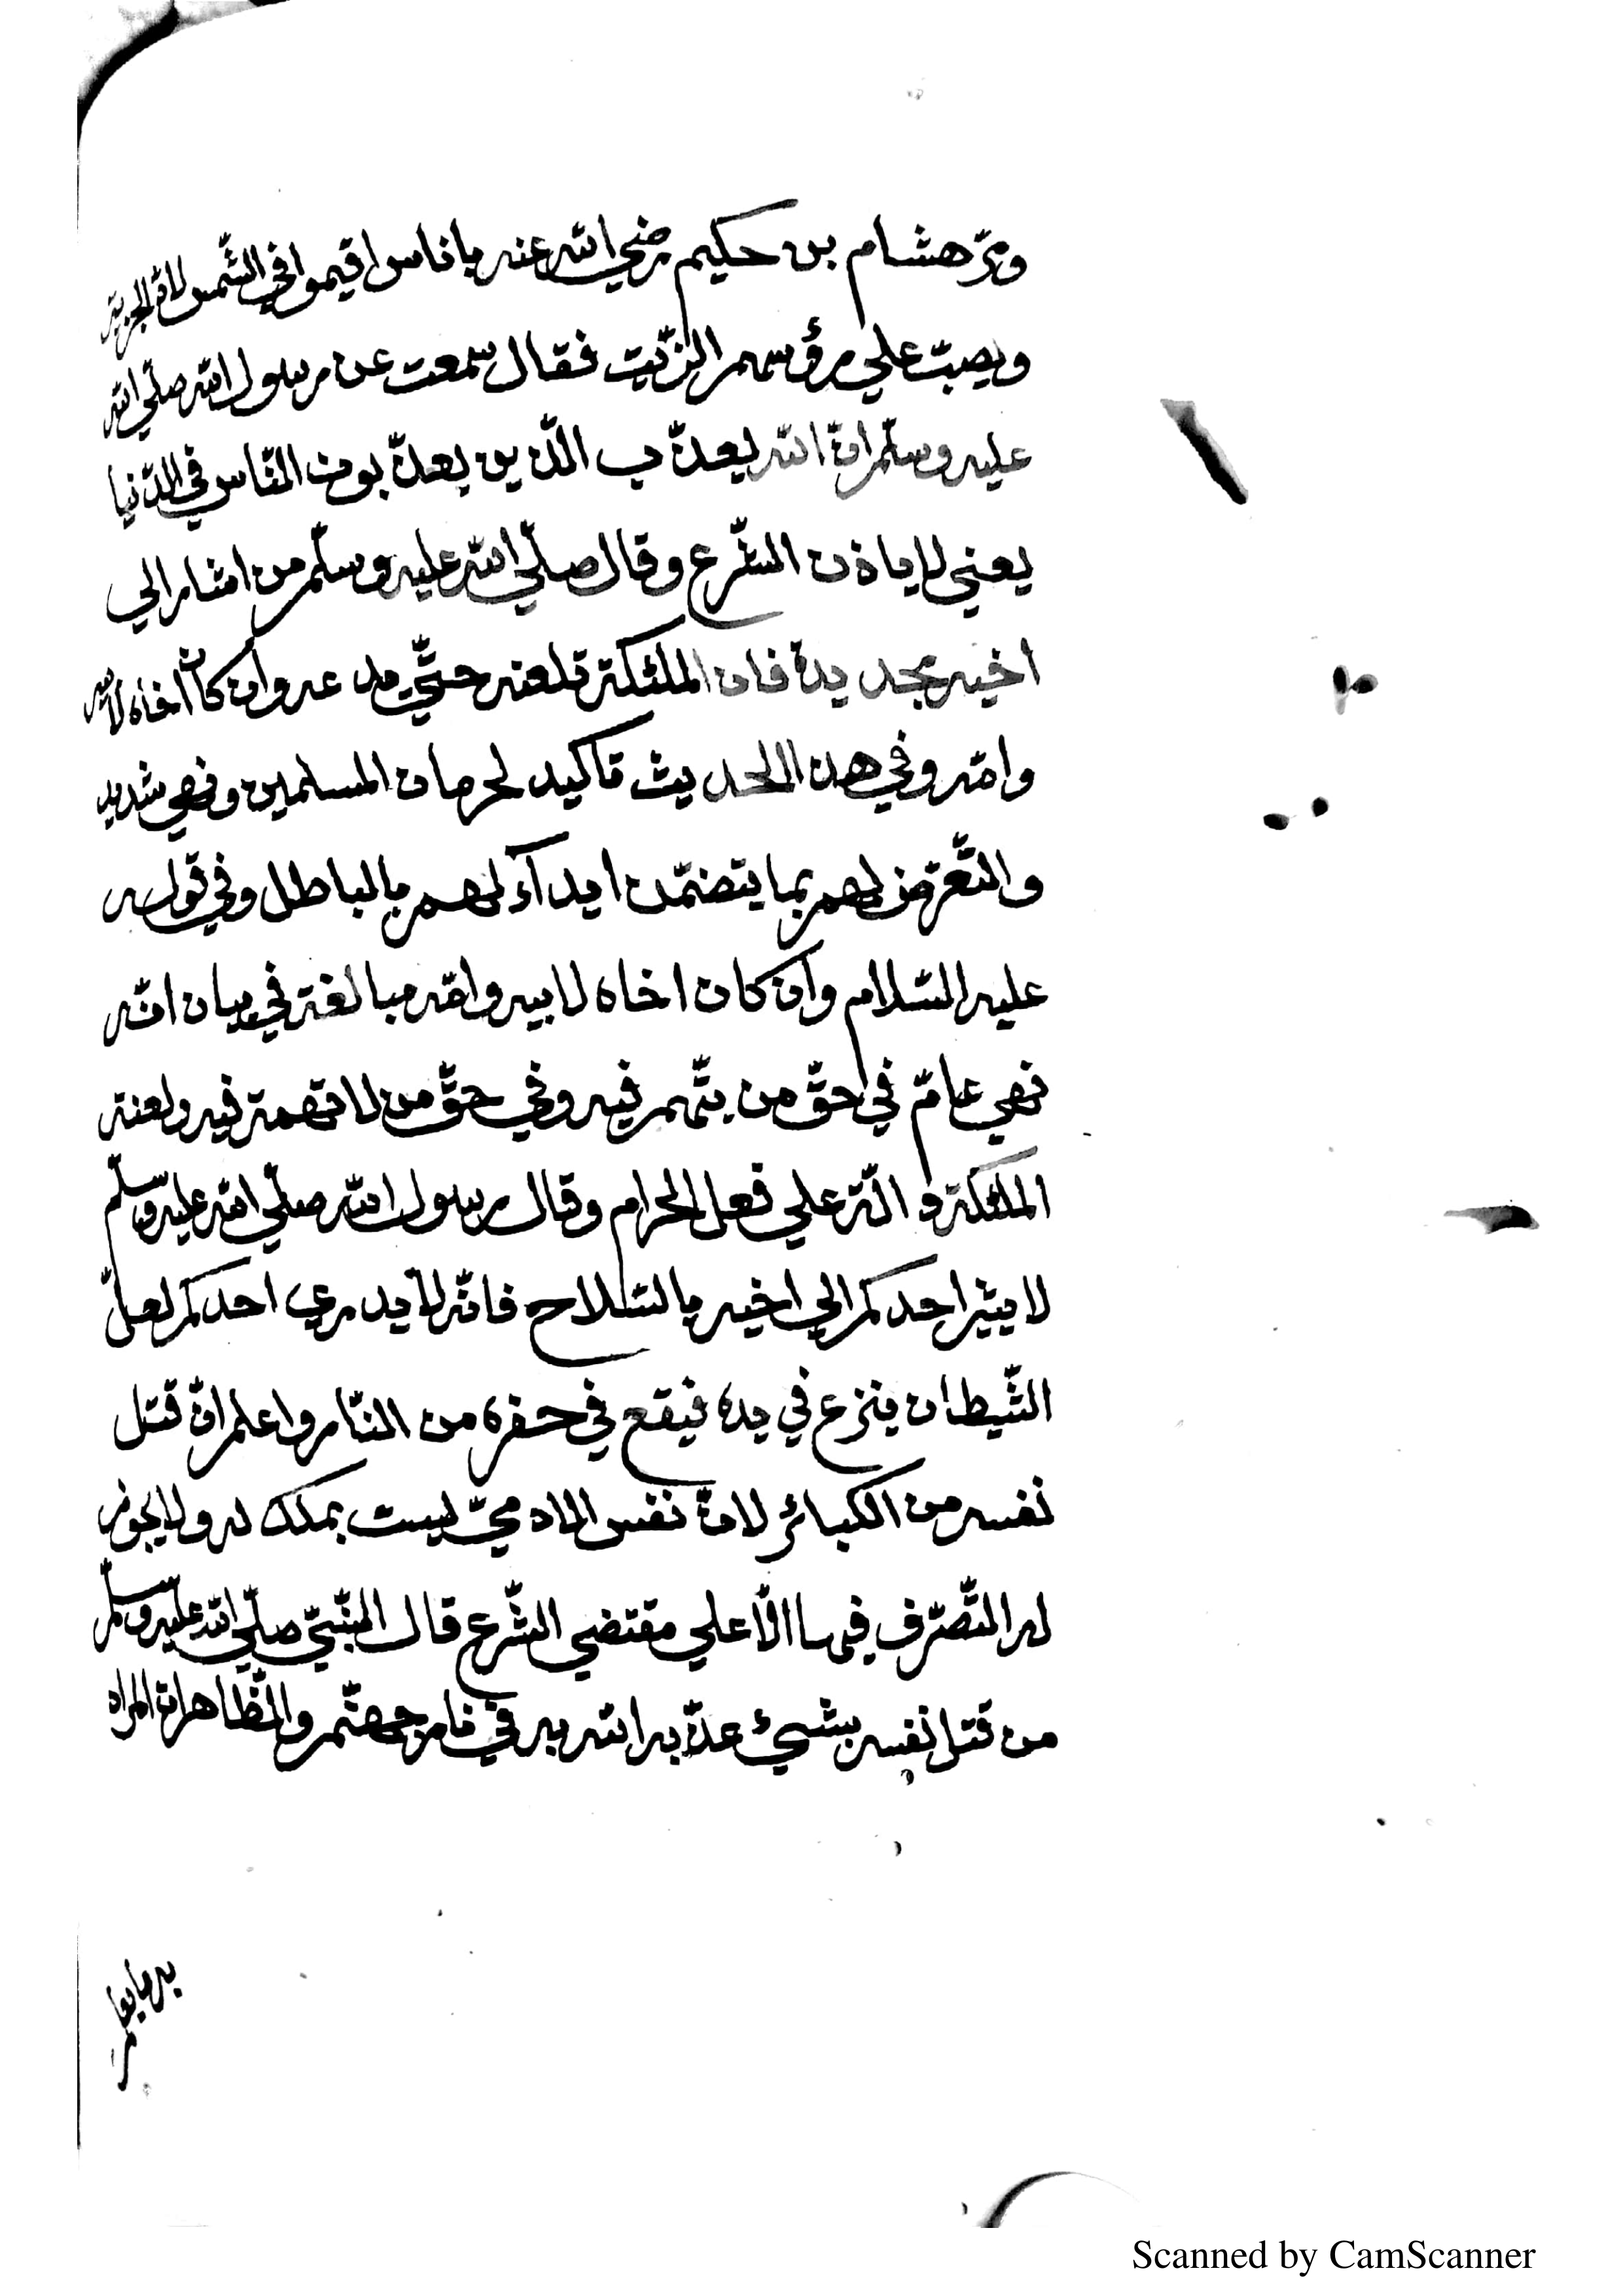 ومرّ هشام بن حكيم رضي الله عنه باناس اقيموا في الشّمس لاداۤء الجزية
ويصبّ علي رؤسهم الزّيت فقال سمعت عن رسول الله صلّي الله
عليه وسلّم انّ الله يعذّب الّذين يعذّبون النّاس في الدّنيا
يعني لا باذن الشّرع وقال صلّي الله عليه وسلّم من اشار الي
اخيه بحديدة فان الملئكة تلعنه حتّي يدعه وان كان اخاه لابيه
وامّه وفي هذا الحديث تاكيد لحرمات المسلمين ونهي شديد
والتّعرّض لهم بما يتضمّن ايذآء لهم بالباطل وفي قوله
عليه السّلام وان كان اخاه لابيه وامّه مبالغة في بيان انّه
نهي عامّ في حقّ من يتّهم فيه وفي حقّ من لا تهمة فيه ولعنة
الملئكة دالّة علي فعل الحرام وقال رسول الله صلّي الله عليه وسلّم
لا يشير احدكم الي اخيه بالسّلاح فانّه لا يدري احدكم لعلّ
الشّيطان ينزع في يده فيقع في حفرة من النّار واعلم انّ قتل
نفسه من الكبائر لانّ نفس الادميّ ليست بملك له ولا يجوز
له التّصرّف فيها الّا علي مقتضي الشّرع قال النّبيّ صلّي الله عليه وسلّم
من قتل نفسه بشيئ عذّبه الله به في نار جهنّم والظّاهر انّ المراد
به ما يعا
Scanned by CamScanner